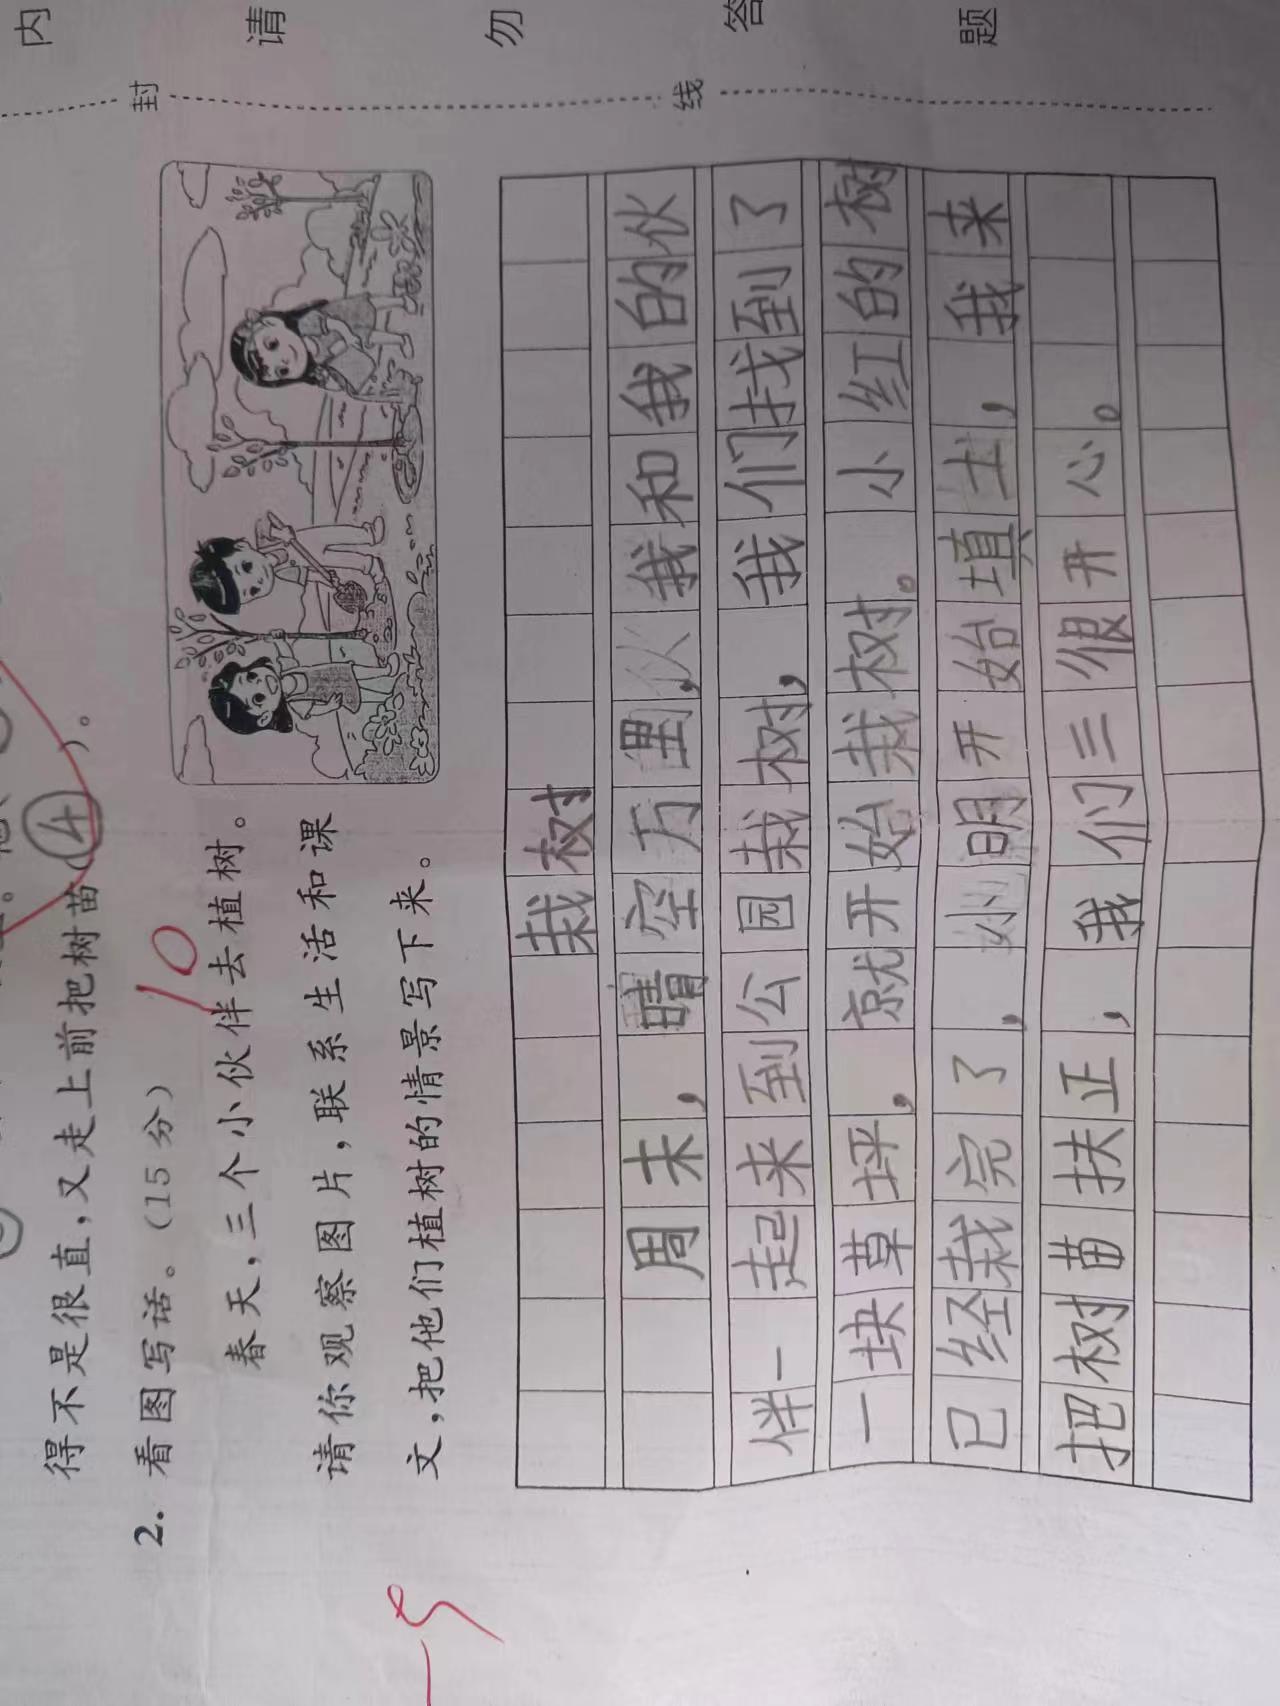 内 请 勿 答 题
封 线
得不是很直，又走上前把树苗（④）。
2. 看图写话。（15分）
10
春天，三个小伙伴去植树。
请你观察图片，联系生活和课
文，把他们植树的情景写下来。
-5
栽树
周末，晴空万里，我和我的伙
伴一起来到公园栽树，我们找到了
一块草坪，就开始栽树。小红的树
已经栽完了，小明开始填土，我来
把树苗扶正，我们三很开心。